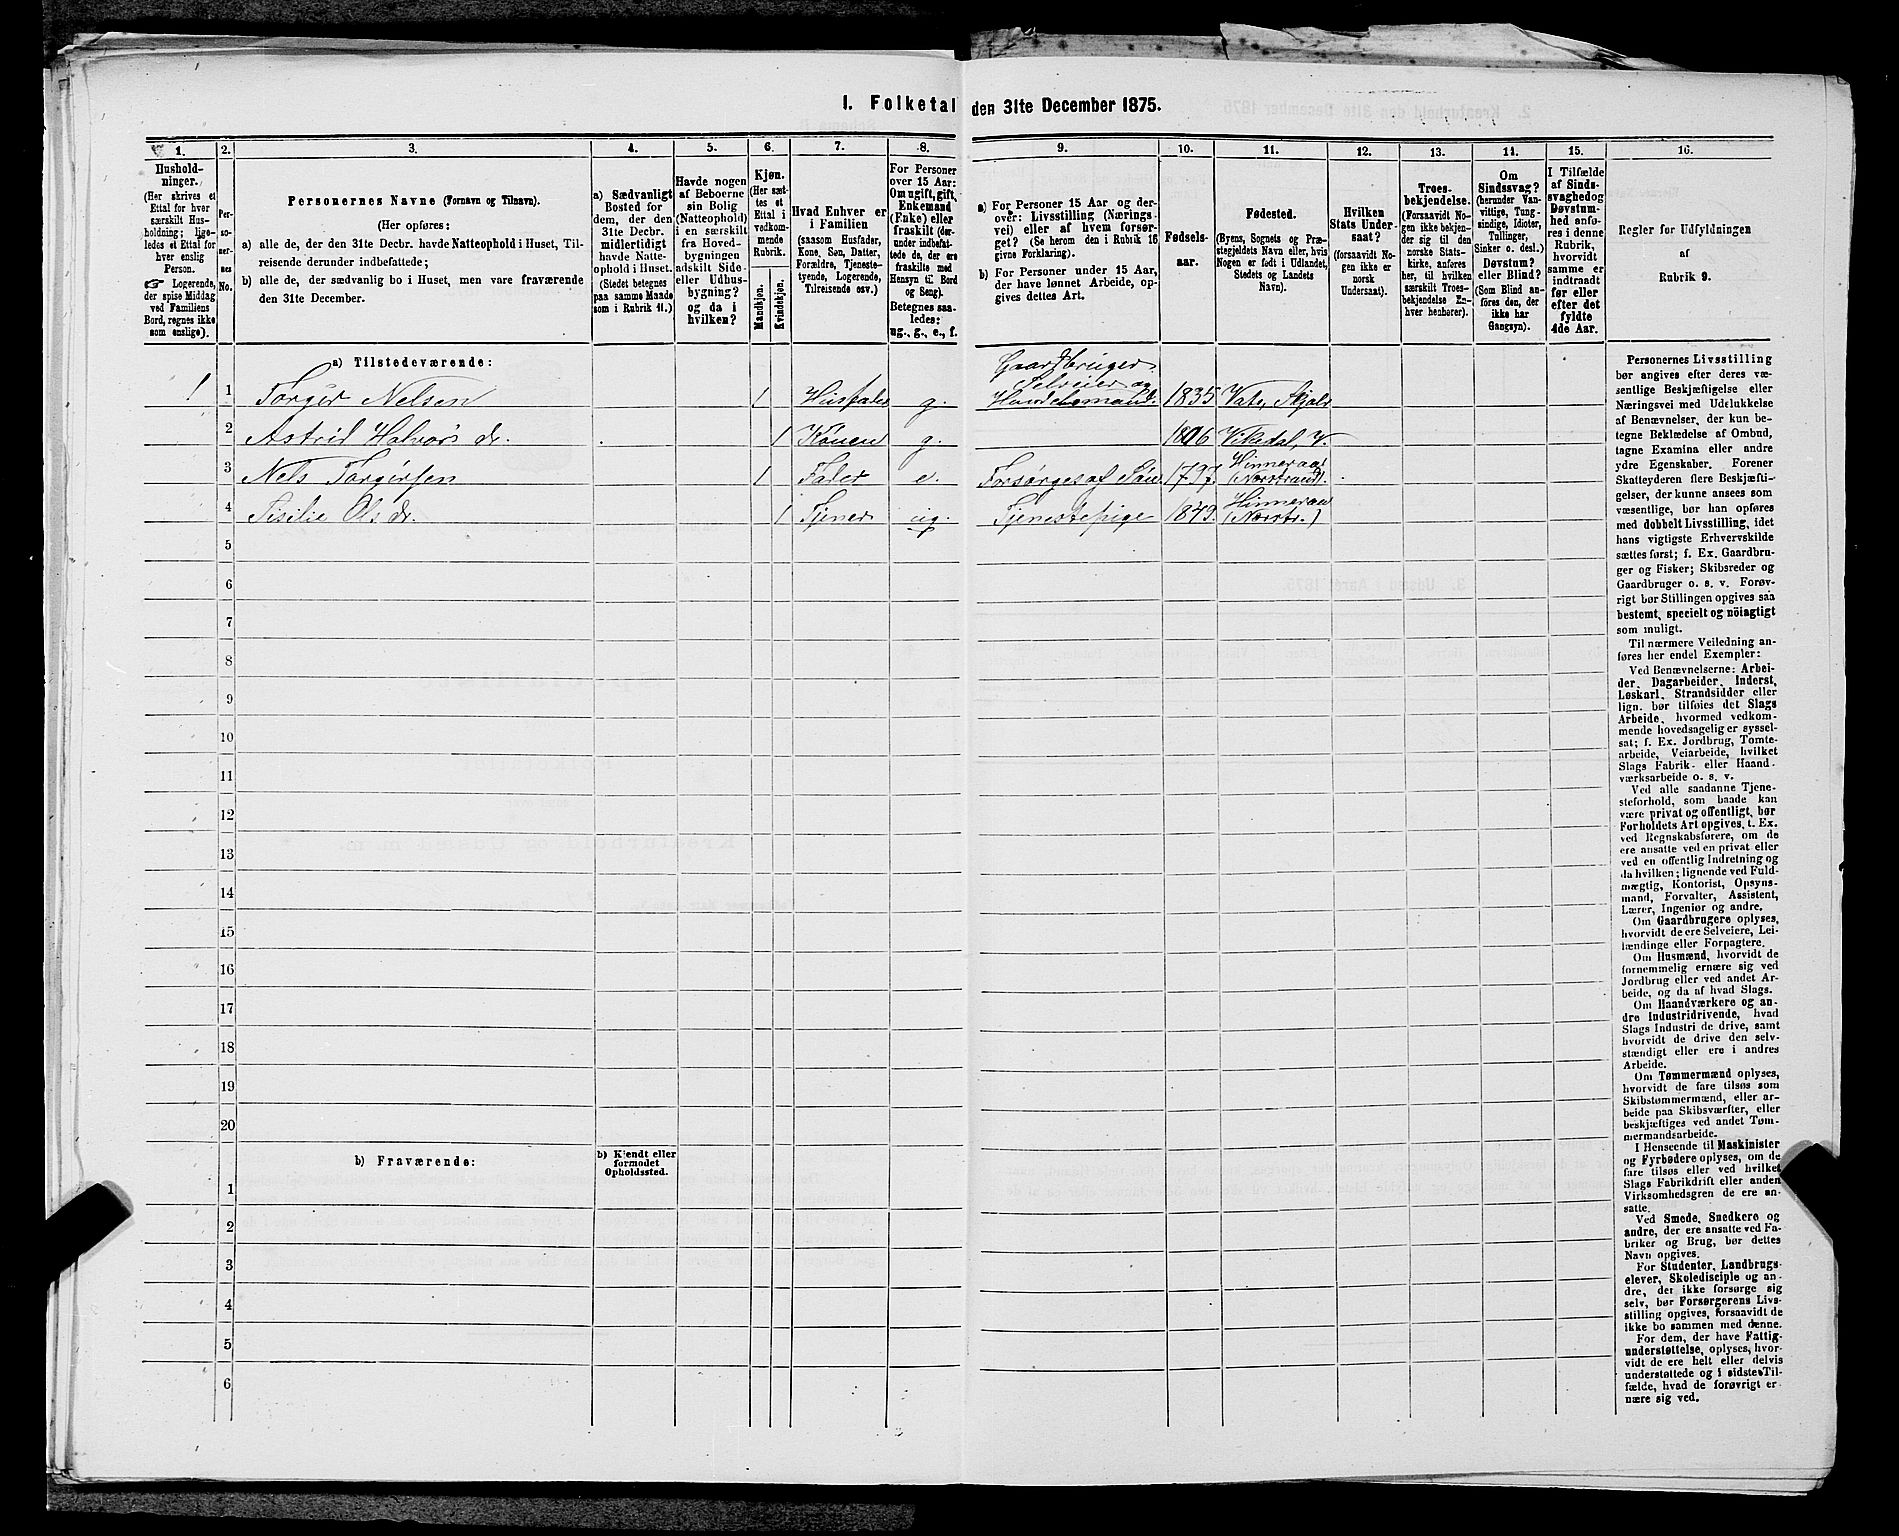 1. Folketal den 31te December 1875.
1.
2.
3.
4.
5.
6.
7.
8.
9.
10.
11.
12.
13.
14.
15.
16.
Hushold-
ninger.
(Her skrives et
Ettal for hver
særskilt Hus-
holdning; lige-
ledes et Ettal for
hver enslig
Person.
☞ Logerende,
der spise Middag
ved Familiens
Bord, regnes ikke
som enslige).
Per-
so-
ner-
nes
No.
Personernes Navne (Fornavn og Tilnavn).
(Her opføres:
a) alle de, der den 31te Decbr. havde Natteophold i Huset, Til-
reisende derunder indbefattede;
b) alle de, der sædvanlig bo i Huset, men vare fraværende
den 31te December.
a) Sædvanligt
Bosted for
dem, der den
31te Decbr.
midlertidigt
havde Natte-
ophold i Huset.
(Stedet betegnes
paa samme Maade
som i Rubrik 11.)
Havde nogen
af Beboerne
sin Bolig
(Natteophold)
i en særskilt
fra Hoved-
bygningen
adskilt Side-
eller Udhus-
bygning?
og da i
hvilken?
Kjøn.
(Her sæt-
tes et
Ettal i
vedkom-
mende
Rubrik.
Mandkjøn.
Kvindekjøn.
Hvad Enhver er
i Familien
(saasom Husfader,
Kone, Søn, Datter,
Forældre, Tjeneste-
tyende, Logerende,
Tilreisende osv.)
For Personer
over 15 Aar:
Om ugift, gift,
Enkemand
(Enke) eller
fraskilt (der-
under indbefat-
tede de, der ere
fraskilte med
Hensyn til Bord
og Seng).
Betegnes saa-
ledes:
ug., g., e., f.
a) For Personer 15 Aar og der-
over: Livsstilling (Nærings-
vei) eller af hvem forsør-
get? (Se herom den i Rubrik 16
givne Forklaring).
b) For Personer under 15 Aar,
der have lønnet Arbeide, op-
gives dettes Art.
Fødsels-
aar.
Fødested.
(Byens, Sognets og Præ-
stegjeldets Navn eller, hvis
Nogen er født i Udlandet,
Stedets og Landets
Navn).
Hvilken
Stats Under-
saat?
(forsaavidt No-
gen ikke er
norsk
Undersaat).
Troes-
bekjendelse.
(Forsaavidt No-
gen ikke bekjen-
der sig til den
norske Stats-
kirke, anføres
her, til hvilken
særskilt Troes-
bekjendelse En-
hver henhører).
Om
Sindssvag?
(herunder Van-
vittige, Tung-
sindige, Idioter,
Tullinger,
Sinker o. desl.)
Døvstum?
eller Blind?
(Som Blind an-
føres den, der
ikke har
Gangsyn).
I Tilfælde
af Sinds-
svaghed og
Døvstum-
hed anfø-
res i denne
Rubrik,
hvorvidt
samme er
indtraadt
før eller
efter det
fyldte
4de Aar.
Regler for Udfyldningen
af
Rubrik 9.
a) Tilstedeværende:
1 1 Torger Nelsen 1 Husfader g. Gaardbruger Selveier og Handelsmand. 1835 Vats, Skjold
2 Astrid Halvors dr. 1 Konen g. Vikedal, V.
3 Nels Torgersen 1 Fader e. Forsørges af Søn 1797. Hinneraa (Norstrand).
4 Sisilie Ols dr. 1 Tjener ug. Tjenestepige 1849. Hinneraa (Norstr.)
5
6
7
8
9
10
11
12
13
14
15
16
17
18
19
20
b) Fraværende:
b) Kjendt eller
formodet
Opholdssted.
1
2
3
4
5
6
Personernes Livsstilling
bør angives efter deres væ-
sentlige Beskjæftigelse eller
Næringsvei med Udelukkelse
af Benævnelser, der kun be-
tegne Beklædelse af Ombud,
tagne Examina eller andre
ydre Egenskaber. Forener
Skatteyderen flere Beskjæfti-
gelser, der kunne ansees som
væsentlige, bør han opføres
med dobbelt Livsstilling, idet
hans vigtigste Erhvervskilde
sættes først; f. Ex. Gaardbru-
ger og Fisker; Skibsreder og
Gaardbruger o. s. v. Forøv-
rigt bør Stillingen opgives saa
bestemt, specielt og nöiagtigt
som muligt.
Til nærmere Veiledning an-
føres her endel Exempler:
Ved Benævnelserne: Arbei-
der, Dagarbeider, Inderst,
Løskarl, Strandsidder eller
lign. bør tilføies det Slags
Arbeide, hvormed vedkom-
mende hovedsagelig er syssel-
sat; f. Ex. Jordbrug, Tomte-
arbeide, Veiarbeide, hvilket
Slags Fabrik- eller Haand-
værksarbeide o. s. v.
Ved alle saadanne Tjene-
steforhold, som baade kan
være privat og offentligt, bør
Forholdets Art opgives, t. Ex.
ved Regnskabsførere, om de
ere ansatte ved en privat eller
ved en offentlig Indretning og
da hvilken; lignende ved Fuld-
mægtig, Kontorist, Opsyns-
mand, Forvalter, Assistent,
Lærer, Ingeniør og andre.
Om Gaardbrugere oplyses,
hvorvidt de ere Selveiere, Lei-
lændinge eller Forpagtere.
Om Husmænd, hvorvidt de
fornemmelig ernære sig ved
Jordbrug eller ved andet Ar-
beide, og da af hvad Slags.
Om Haandværkere og an-
dre Industridrivende, hvad
Slags Industri de drive, samt
hvorvidt de drive den selv-
stændigt eller ere i andres
Arbeide.
Om Tømmermænd oplyses,
hvorvidt de fare tilsøs som
Skibstømmermænd, eller ar-
beide paa Skibsværfter, eller
beskjæftiges ved andet Tøm-
mermandsarbeide.
I Henseende til Maskinister
og Fyrbødere oplyses, om de
fare tilsøs eller ved hvilket
Slags Fabrikdrift eller anden
Virksomhedsgren de ere an-
satte.
Ved Smede, Snedkere og
andre, der ere ansatte ved Fa-
briker og Brug, bør dettes
Navn opgives.
For Studenter, Landbrugs-
elever, Skoledisciple og an-
dre, der ikke forsørge sig
selv, bør Forsørgerens Livs-
stilling opgives, forsaavidt de
ikke bo sammen med denne.
For dem, der have Fattig-
understøttelse, oplyses, hvor-
vidt de ere helt eller delvis
understøttede og i sidste Til-
fælde, hvad de forøvrigt er-
nære sig ved.